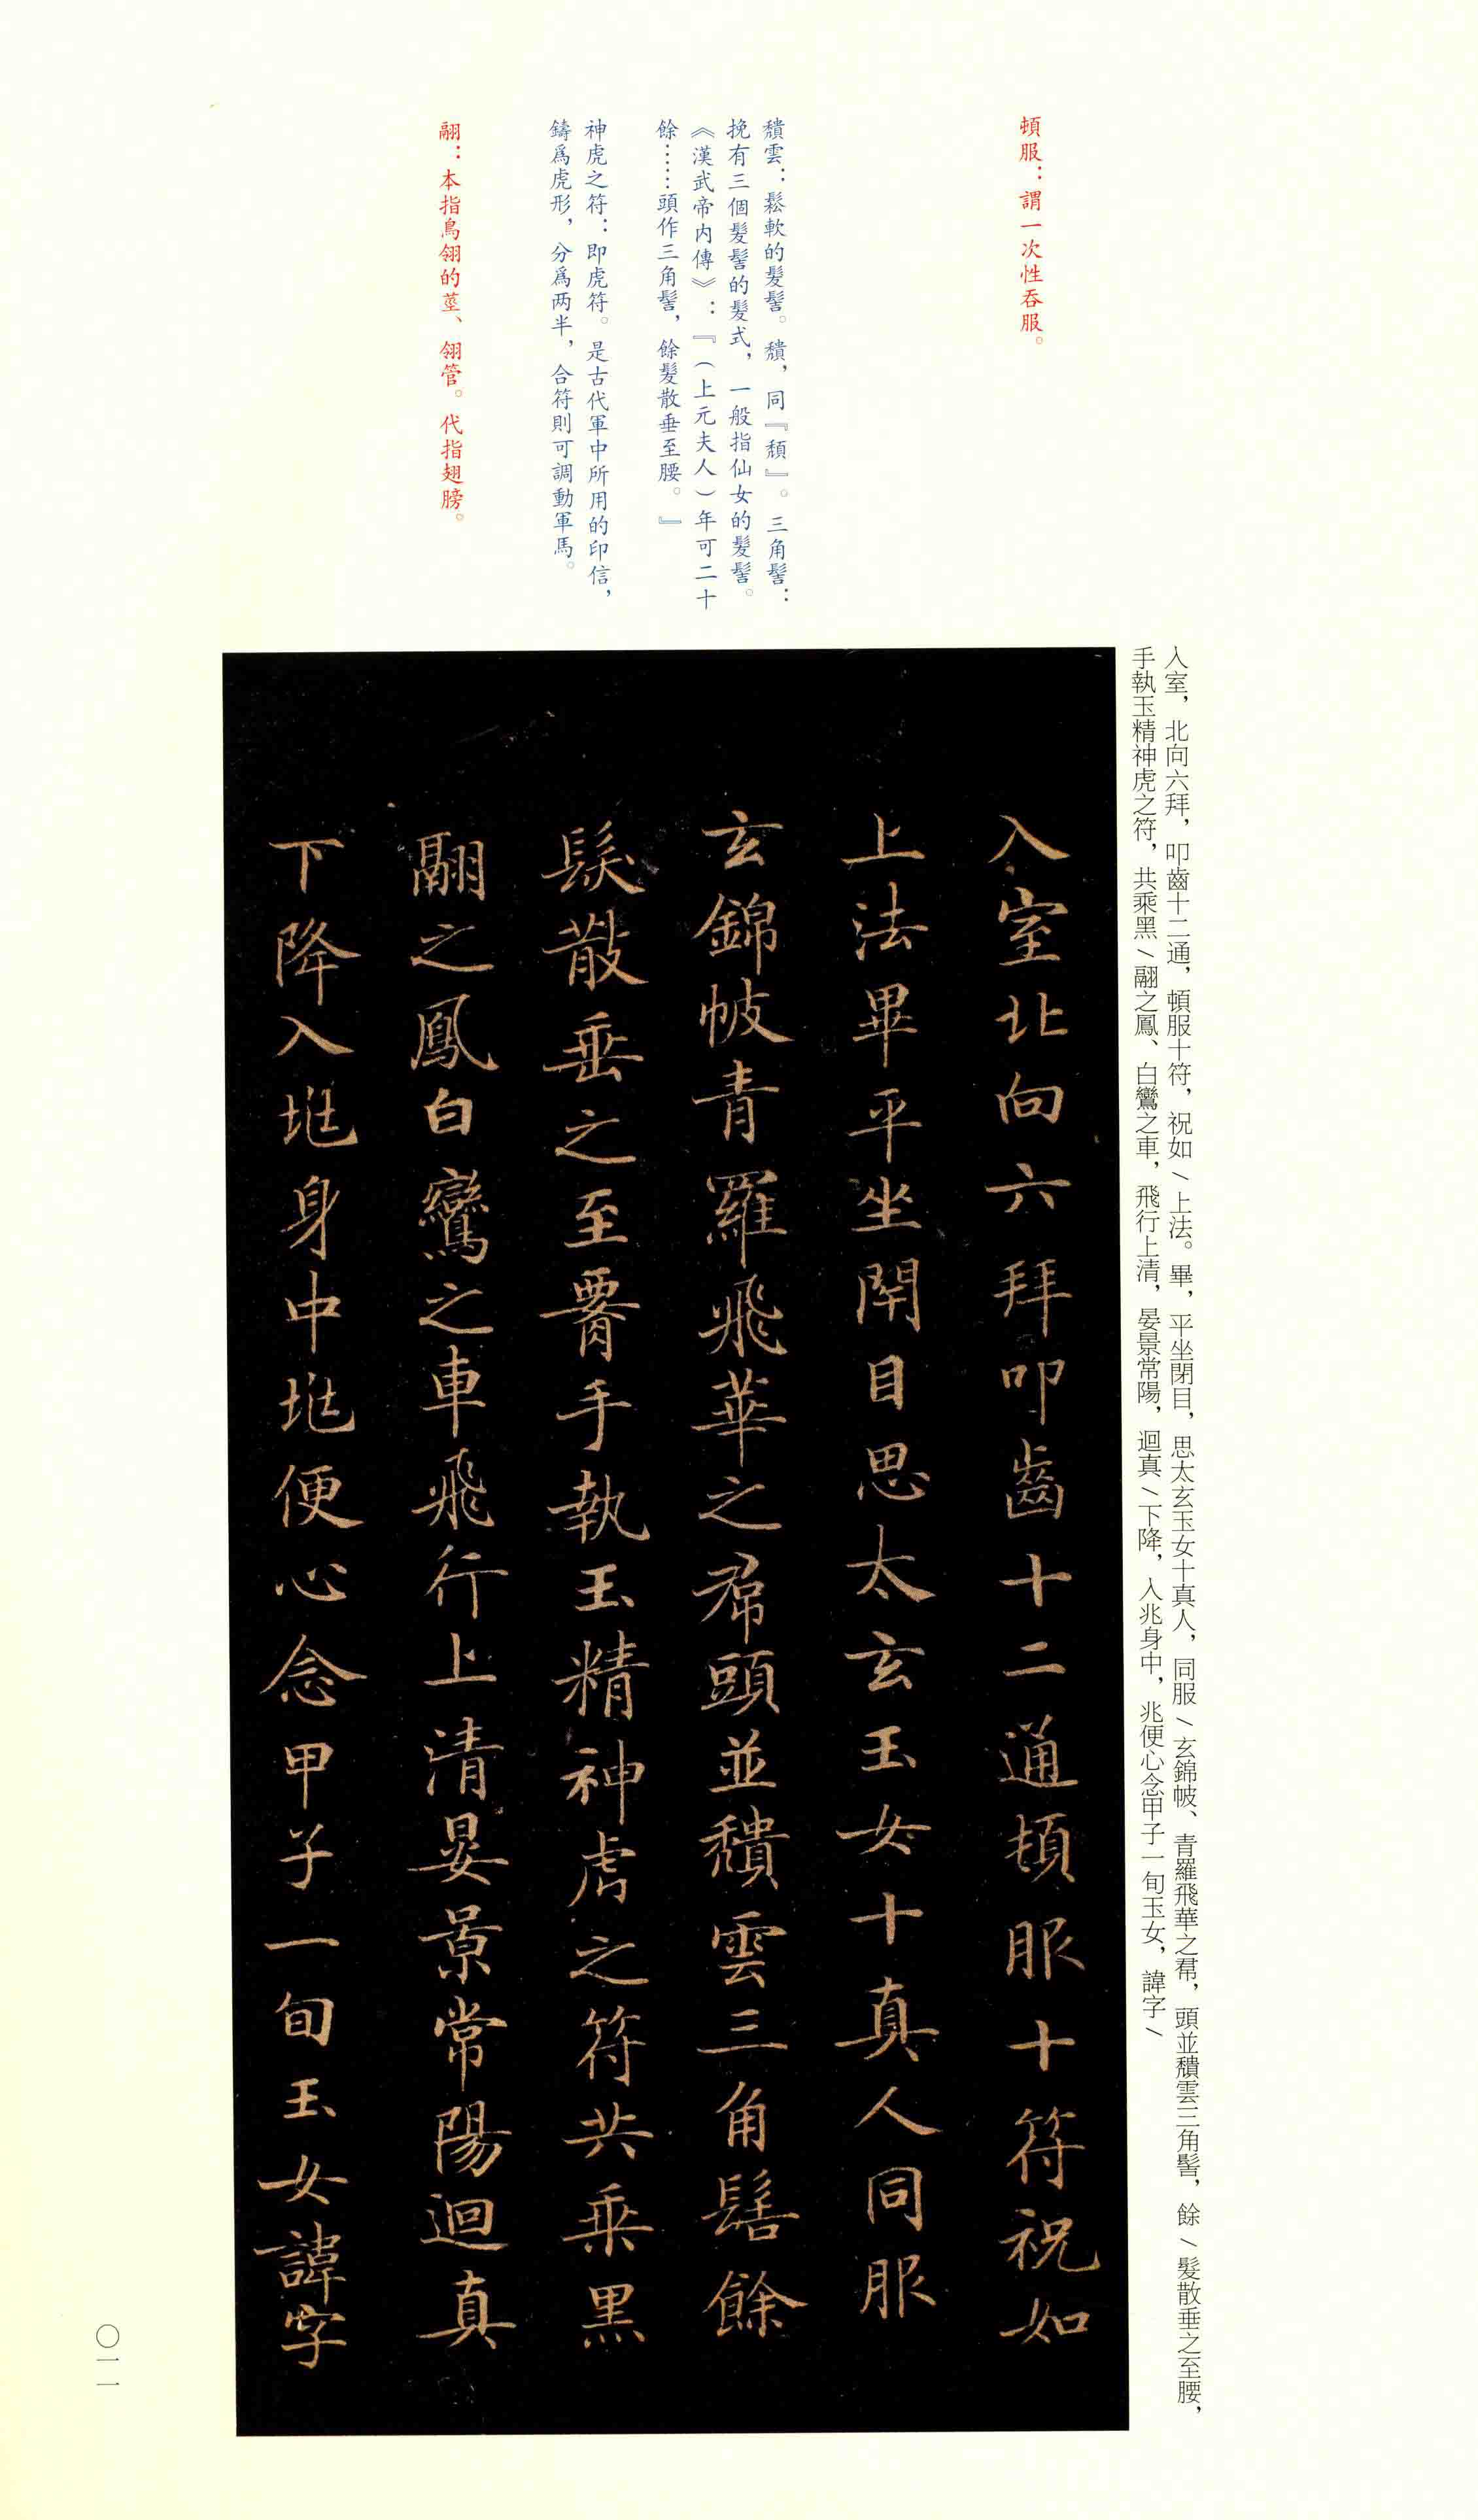 頓服：謂一次性吞服。
穨雲：鬆軟的髮髻。穨，同『頹』。三角髻：
挽有三個髮髻的髮式，一般指仙女的髮髻。
《漢武帝内傳》：『（上元夫人）年可二十
餘……頭作三角髻，餘髮散垂至腰。』
神虎之符：即虎符。是古代軍中所用的印信，
鑄爲虎形，分爲两半，合符則可調動軍馬。
翮：本指鳥翎的莖、翎管。代指翅膀。
入室，北向六拜，叩齒十二通，頓服十符，祝如\上法。畢，平坐閉目，思太玄玉女十真人，同服\玄錦帔、青羅飛華之帬，頭並穨雲三角髻，餘\髮散垂之至腰，
手執玉精神虎之符，共乘黑\翮之鳳、白鸞之車，飛行上清，晏景常陽，迴真\下降，入兆身中，兆便心念甲子一旬玉女，諱字\
入室北向六拜叩齒十二通頓服十符祝如
上法畢平坐閇目思太玄玉女十真人同服
玄錦帔青羅飛華之帬頭並穨雲三角髻餘
髮散垂之至腰手執玉精神虎之符共乘黑
翮之鳳白鸞之車飛行上清晏景常陽迴真
下降入兆身中兆便心念甲子一旬玉女諱字
〇一一